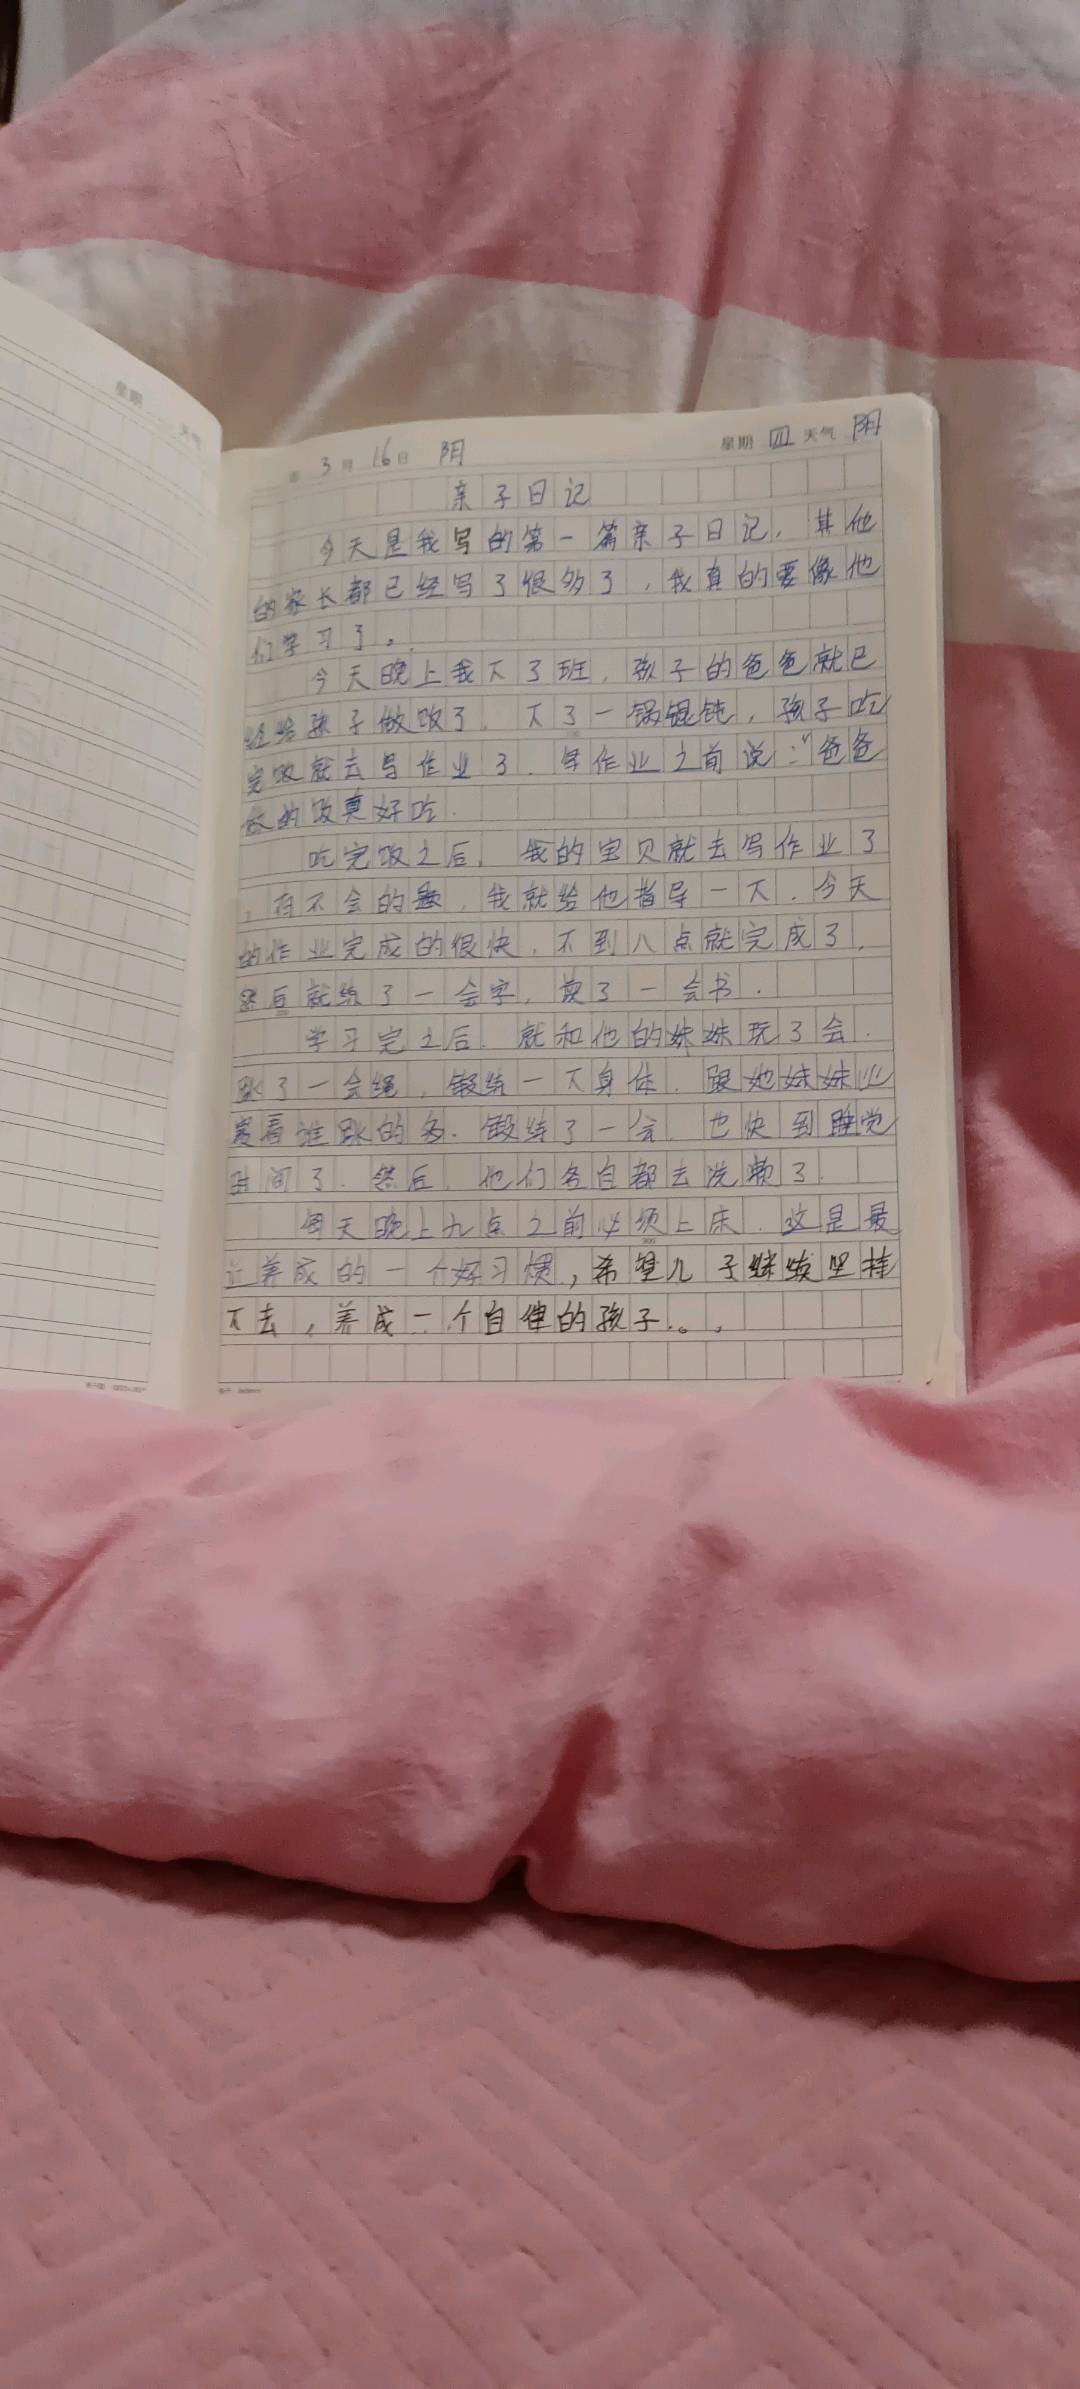 星期 天气
年 3月 16日 阴 星期 四 天气 阴
亲子日记
今天是我写的第一篇亲子日记,其他
的家长都已经写了很多了,我真的要像他
们学习了。
今天晚上我下了班,孩子的爸爸就已
经给孩子做饭了.下了一锅馄饨,孩子吃
完饭就去写作业了.写作业之前说:"爸爸
做的饭真好吃.
吃完饭之后,我的宝贝就去写作业了
,有不会的题,我就给他指导一下.今天
的作业完成的很快,不到八点就完成了,
然后就练了一会字,读了一会书.
学习完之后.就和他的妹妹玩了会.
跳了一会绳,锻练一下身体.跟她妹妹比
赛看谁跳的多.锻练了一会.也快到睡觉
时间了.然后,他们各自都去洗漱了.
每天晚上九点之前必须上床.这是最
近养成的一个好习惯,希望儿子继续坚持
下去,养成一个自律的孩子。